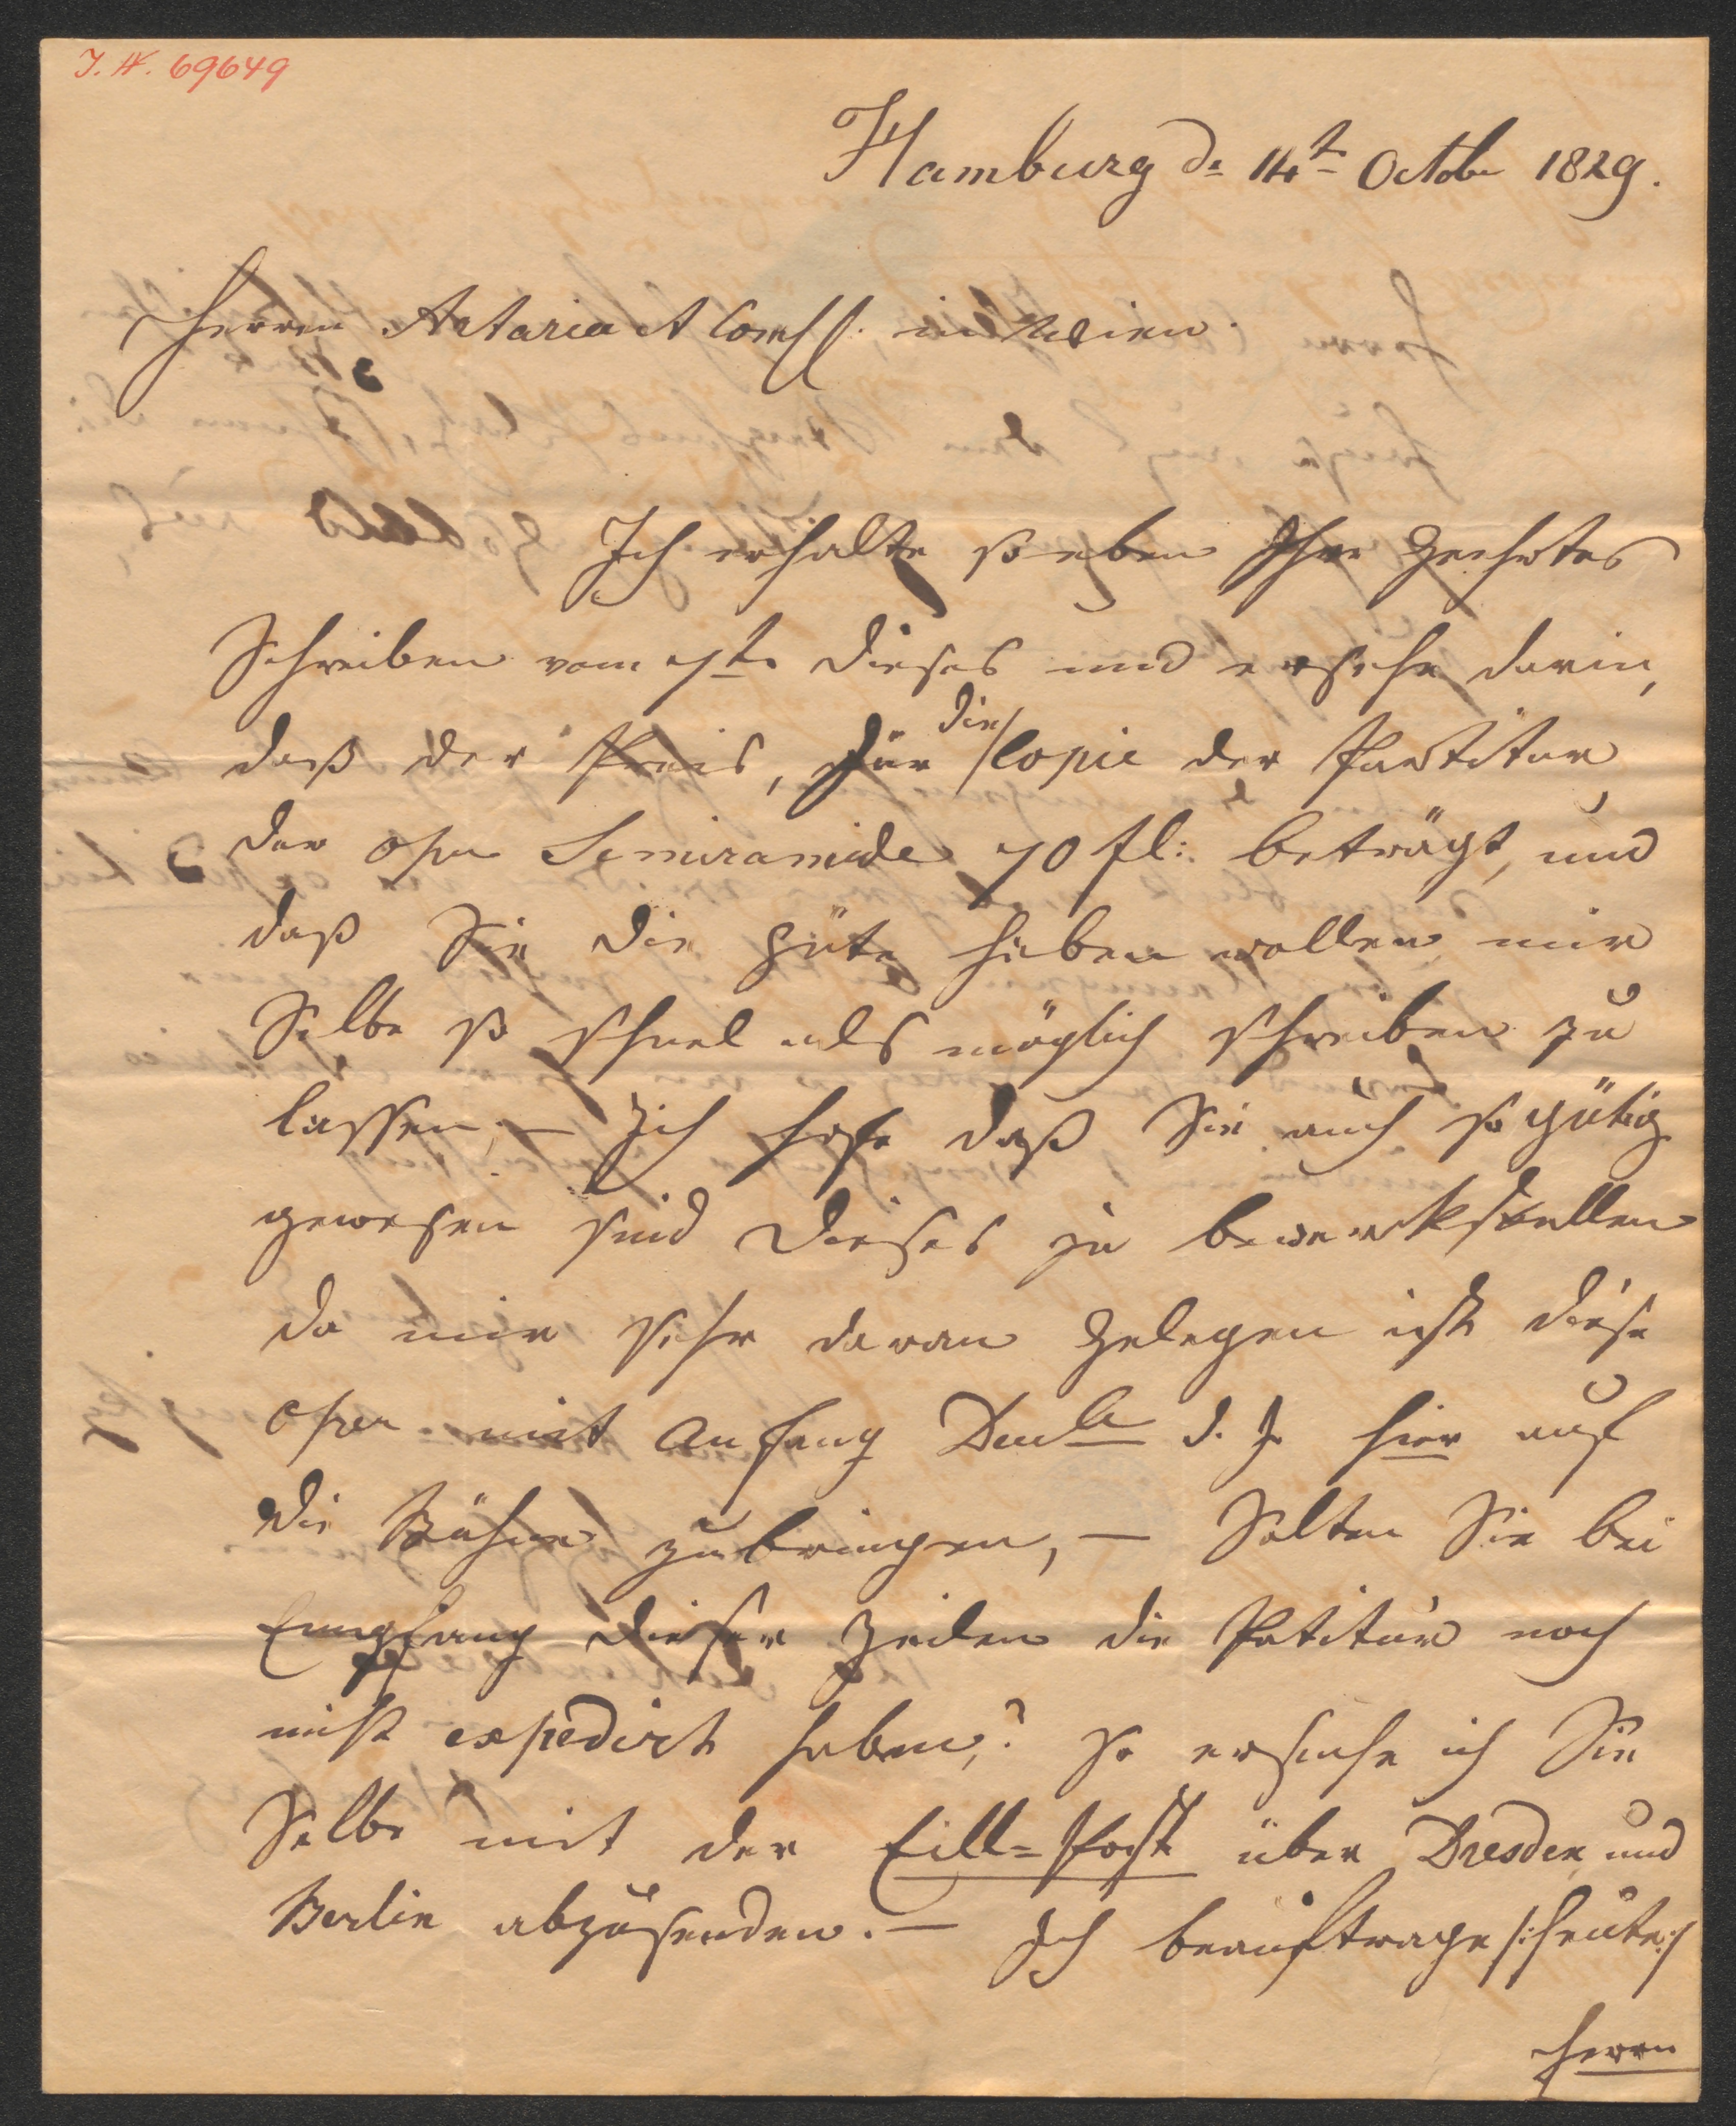 J. N. 69649
Hamburg d: 14t. Octobr 1829.
Herren Artaria et Comp. in Wien.
Ich erhalte so eben Ihr geehrtes
Schreiben vom 7t. dieses und ersehe darin,
daß der Preis, für die Copie der Partitur
der Oper Semiramide 70 fl: beträgt, und
daß Sie die Güte haben wollen mir
Selbe so schnel als möglich schreiben zu
lassen, — Ich hofe daß Sie auch so gütig
gewesen sind dieses zu bewerkstellen
da mir sehr daran gelegen ist diese
Oper mit Anfang Decbr d. J. hier auf
die Bühne zu bringen, — Solten Sie bei
Empfang dieser Zeilen die Patitur noch
nicht expedirt haben,? so ersuche ich Sie
Selbe mit der Eill=Post über Dresden und
Berlin abzusenden. — Ich beauftrage /:heute:/
Herrn